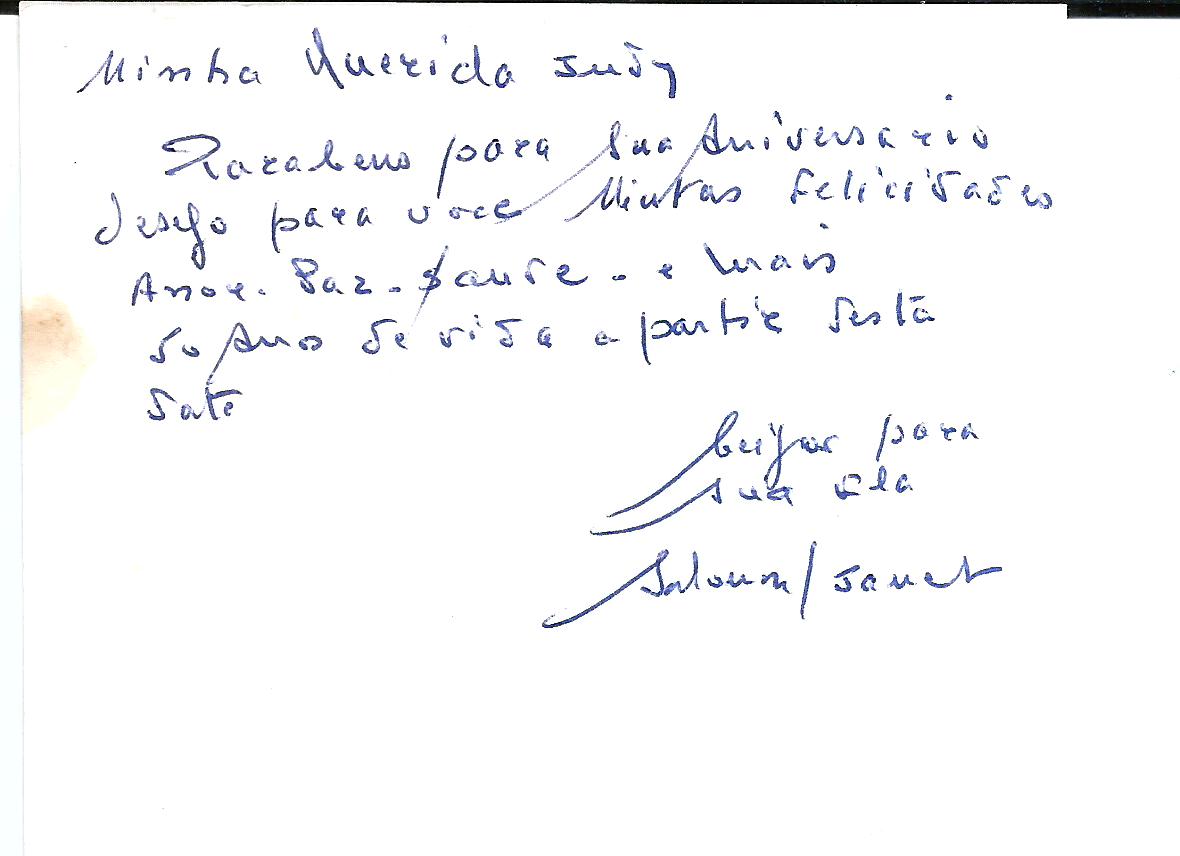 Minha Querida Judy
Parabens para sua Aniversario
desejo para voce Muitas Felicidades
Amor. Paz. Saude. e mais
50 Anos de vida a partir desta
date
beijos para
sua
Salomon / Janet